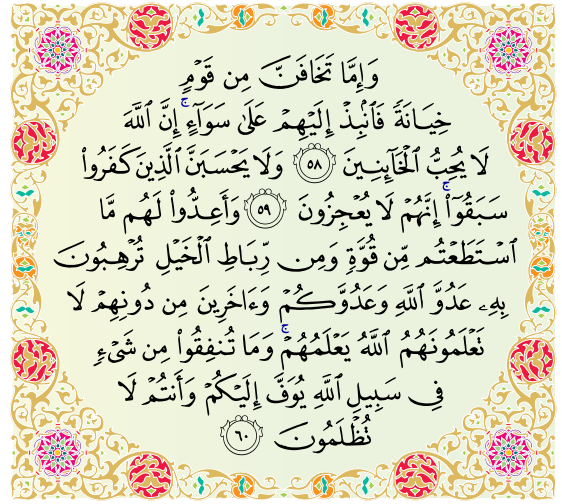 وَإِمَّا تَخَافَنَّ مِن قَوْمٍ
خِيَانَةً فَٱنۢبِذْ إِلَيْهِمْ عَلَىٰ سَوَآءٍ ۚ إِنَّ ٱللَّهَ
لَا يُحِبُّ ٱلْخَآئِنِينَ ٥٨ وَلَا يَحْسَبَنَّ ٱلَّذِينَ كَفَرُوا۟
سَبَقُوٓا۟ ۚ إِنَّهُمْ لَا يُعْجِزُونَ ٥٩ وَأَعِدُّوا۟ لَهُم مَّا
ٱسْتَطَعْتُم مِّن قُوَّةٍ وَمِن رِّبَاطِ ٱلْخَيْلِ تُرْهِبُونَ
بِهِۦ عَدُوَّ ٱللَّهِ وَعَدُوَّكُمْ وَءَاخَرِينَ مِن دُونِهِمْ لَا
تَعْلَمُونَهُمُ ٱللَّهُ يَعْلَمُهُمْ ۚ وَمَا تُنفِقُوا۟ مِن شَىْءٍ
فِى سَبِيلِ ٱللَّهِ يُوَفَّ إِلَيْكُمْ وَأَنتُمْ لَا
تُظْلَمُونَ ٦٠